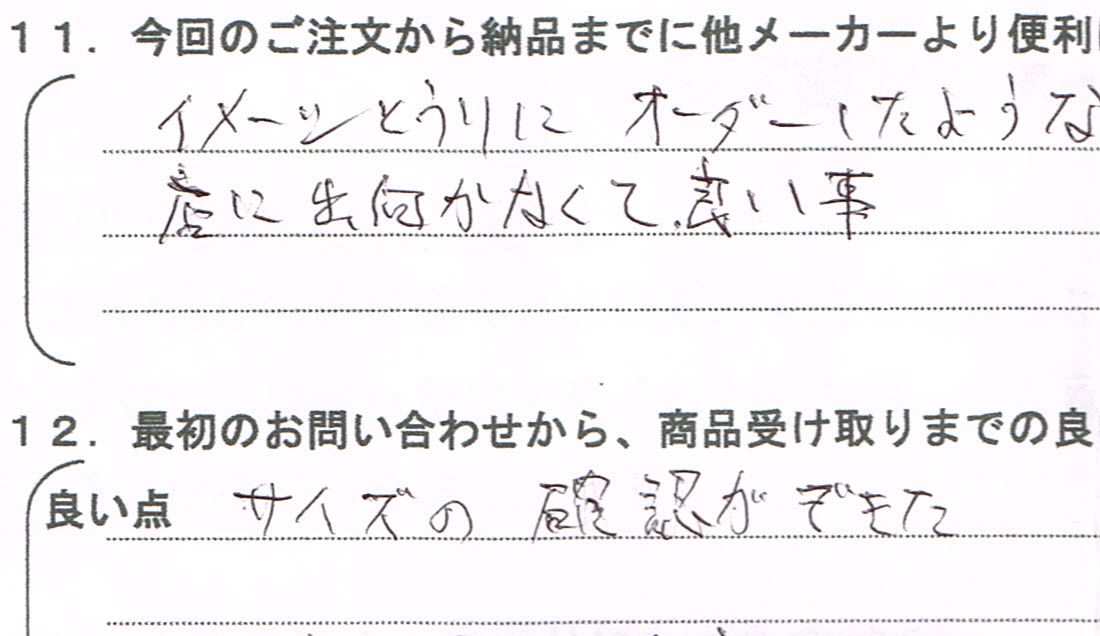 11．今回のご注文から納品までに他メーカーより便利
イメージとうりに オーダーしたような
店に出向かなくて良い事
12．最初のお問い合わせから、商品受け取りまでの良
良い点 サイズの 確認ができた